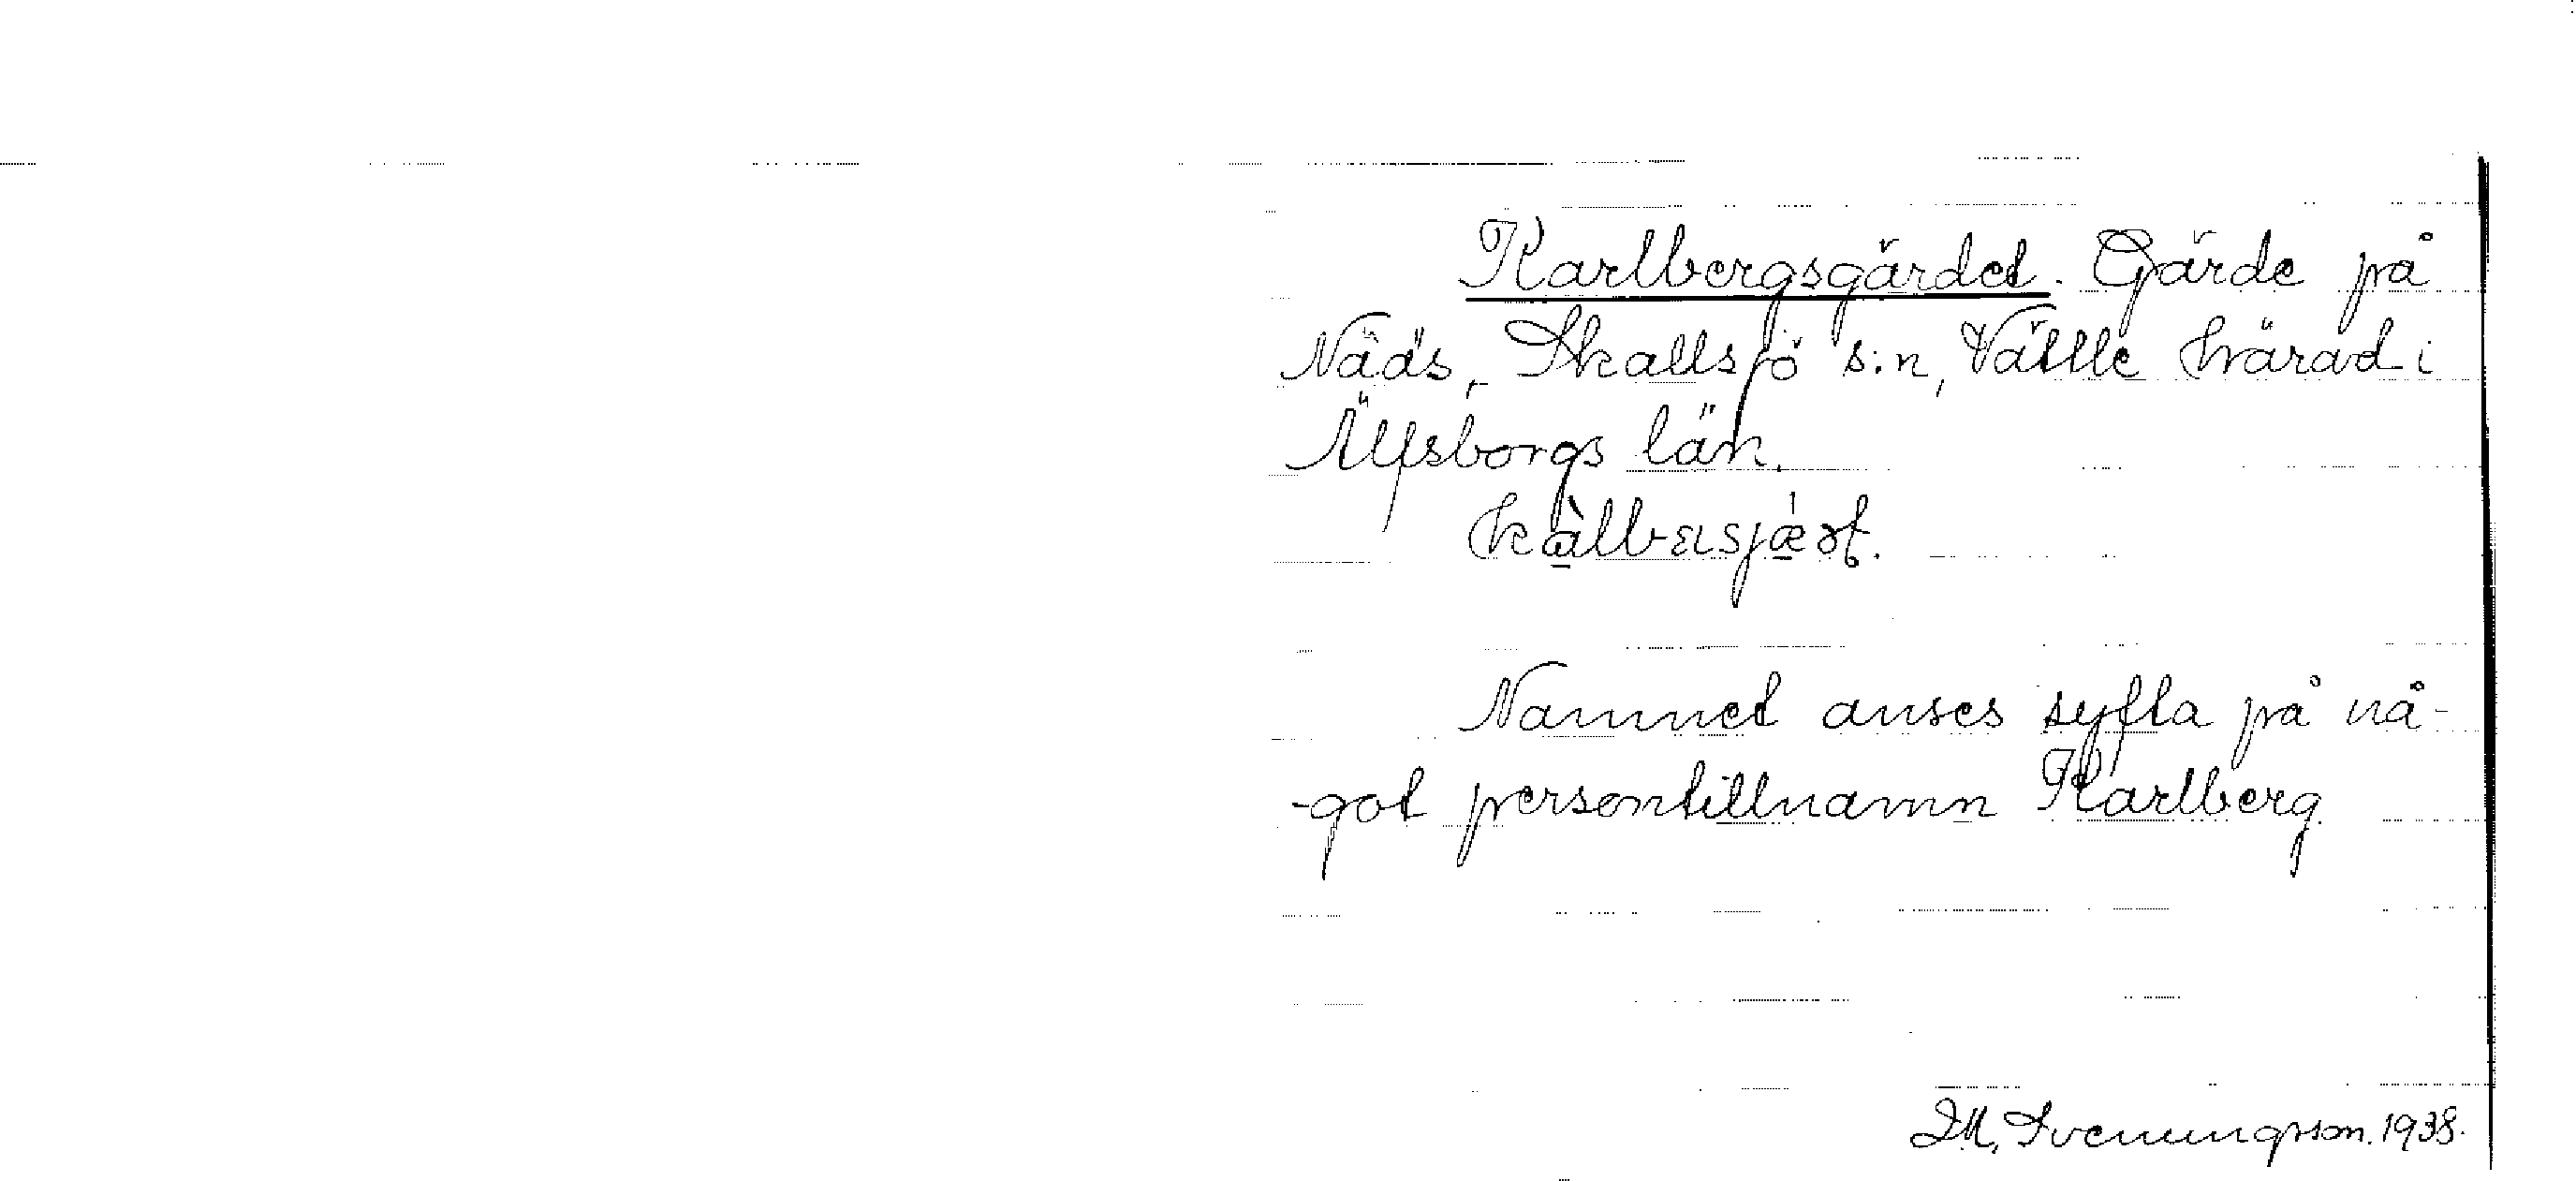 Karlbergsgärdet. Gärde på
Nääs, Skallsjö s:n, Vättle härad i
Älfsborgs län.
Namnet anses syfta på nå-
-got persontillnamn Karlberg
Svenungsson. 1938.